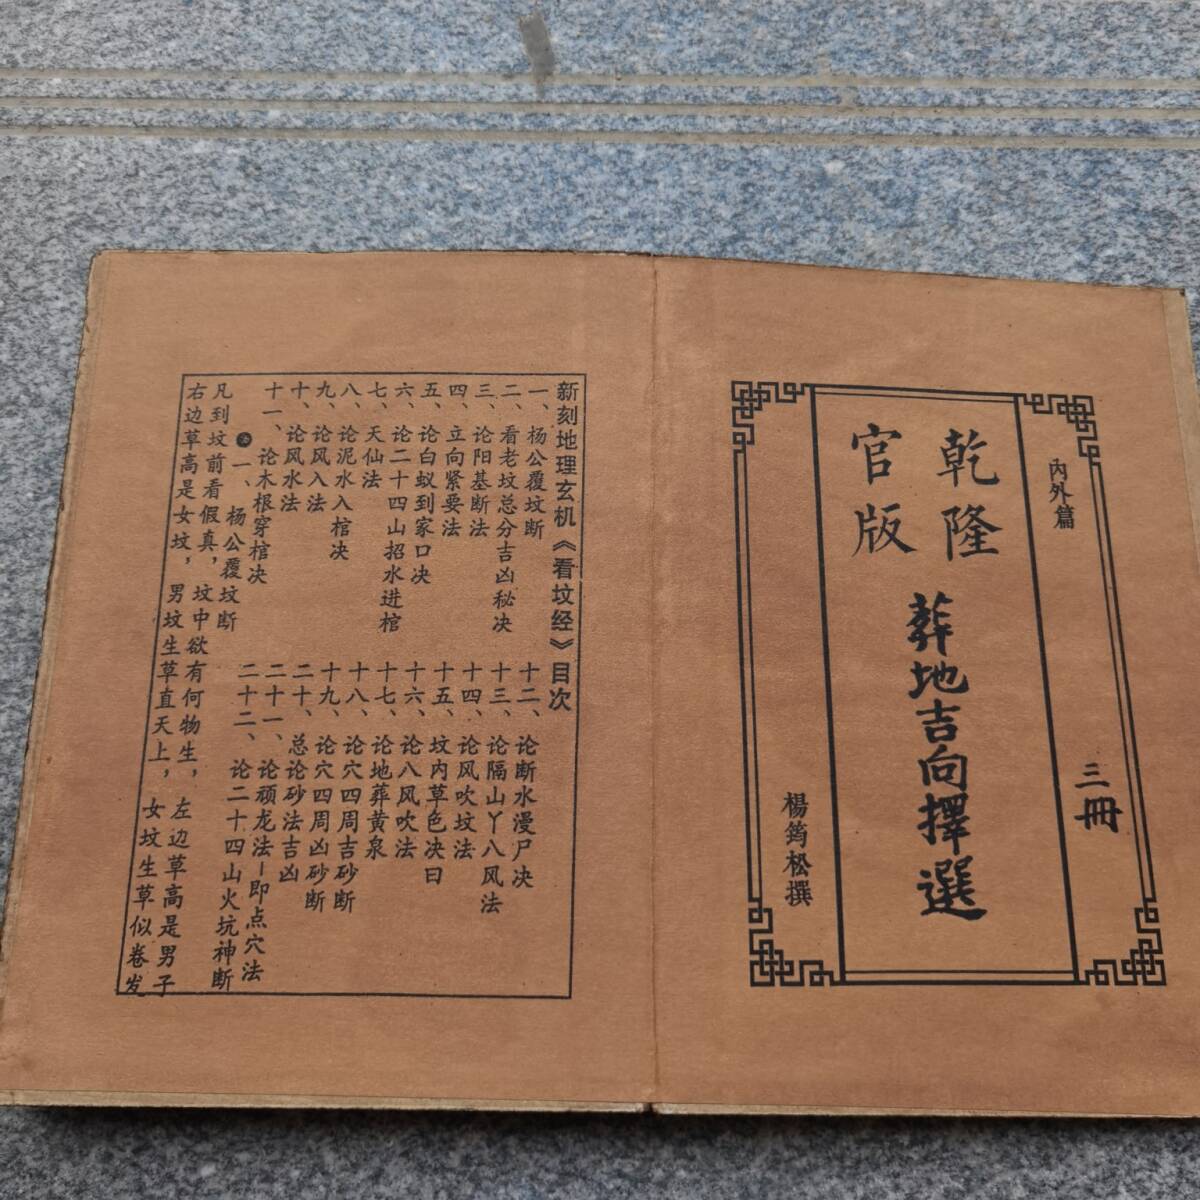 内外篇
三冊
乾隆
官版
葬地吉向擇選
楊筠松撰
新刻地理玄机《看坟经》目次
一、杨公覆坟断
二、看老坟总分吉凶秘决
三、论阳基断法
四、立向紧要法
五、论白蚁到家口决
六、论二十四山招水进棺
七、天仙法
八、论泥水入棺决
九、论风入法
十、论风水法
十一、论木根穿棺决
十二、论断水漫尸决
十三、论隔山丫八风法
十四、论风吹坟法
十五、坟内草色决曰
十六、论八风吹法
十七、论地葬黄泉
十八、论穴四周吉砂断
十九、论穴四周凶砂断
二十、总论砂法吉凶
二十一、论顽龙法－即点穴法
二十二、论二十四山火坑神断
一、杨公覆坟断
凡到坟前看假真，坟中欲有何物生，左边草高是男子
右边草高是女坟，男坟生草直天上，女坟生草似卷发